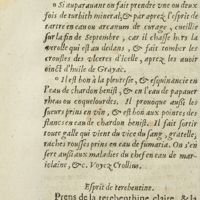 ¶ Si auparauant on fait prendre vne ou deux
fois de turbith mineral, & par apres l'esprit de
tartre en eau ou arcanum de corage, cueillie
sur la fin de Septembre, car il chasse hors la
verolle qui est au dedans, & fait tomber les
croustes des vlceres d'icelle, apres auoir oinct
d'huile de Gayac.
¶ Il est bon à la pleuresie, & esquinancie en
l'eau de chardon benist, & en l'eau de papauer
rheas ou coquelourdes. Il prouoque aussi les
sueurs prins en vin, & est bon aux pointes des
flancs en eau de chardon benist. Il fait sortir
toute galle qui vient du vice du sang, gratelle,
taches rousses prins en eau de fumaria. On s'en
sert aussi aux maladies du chef en eau de mar-
iolaine, &c. Voyez Crollius.
Esprit de terebentine.
Prens de la terebenthine claire, & la